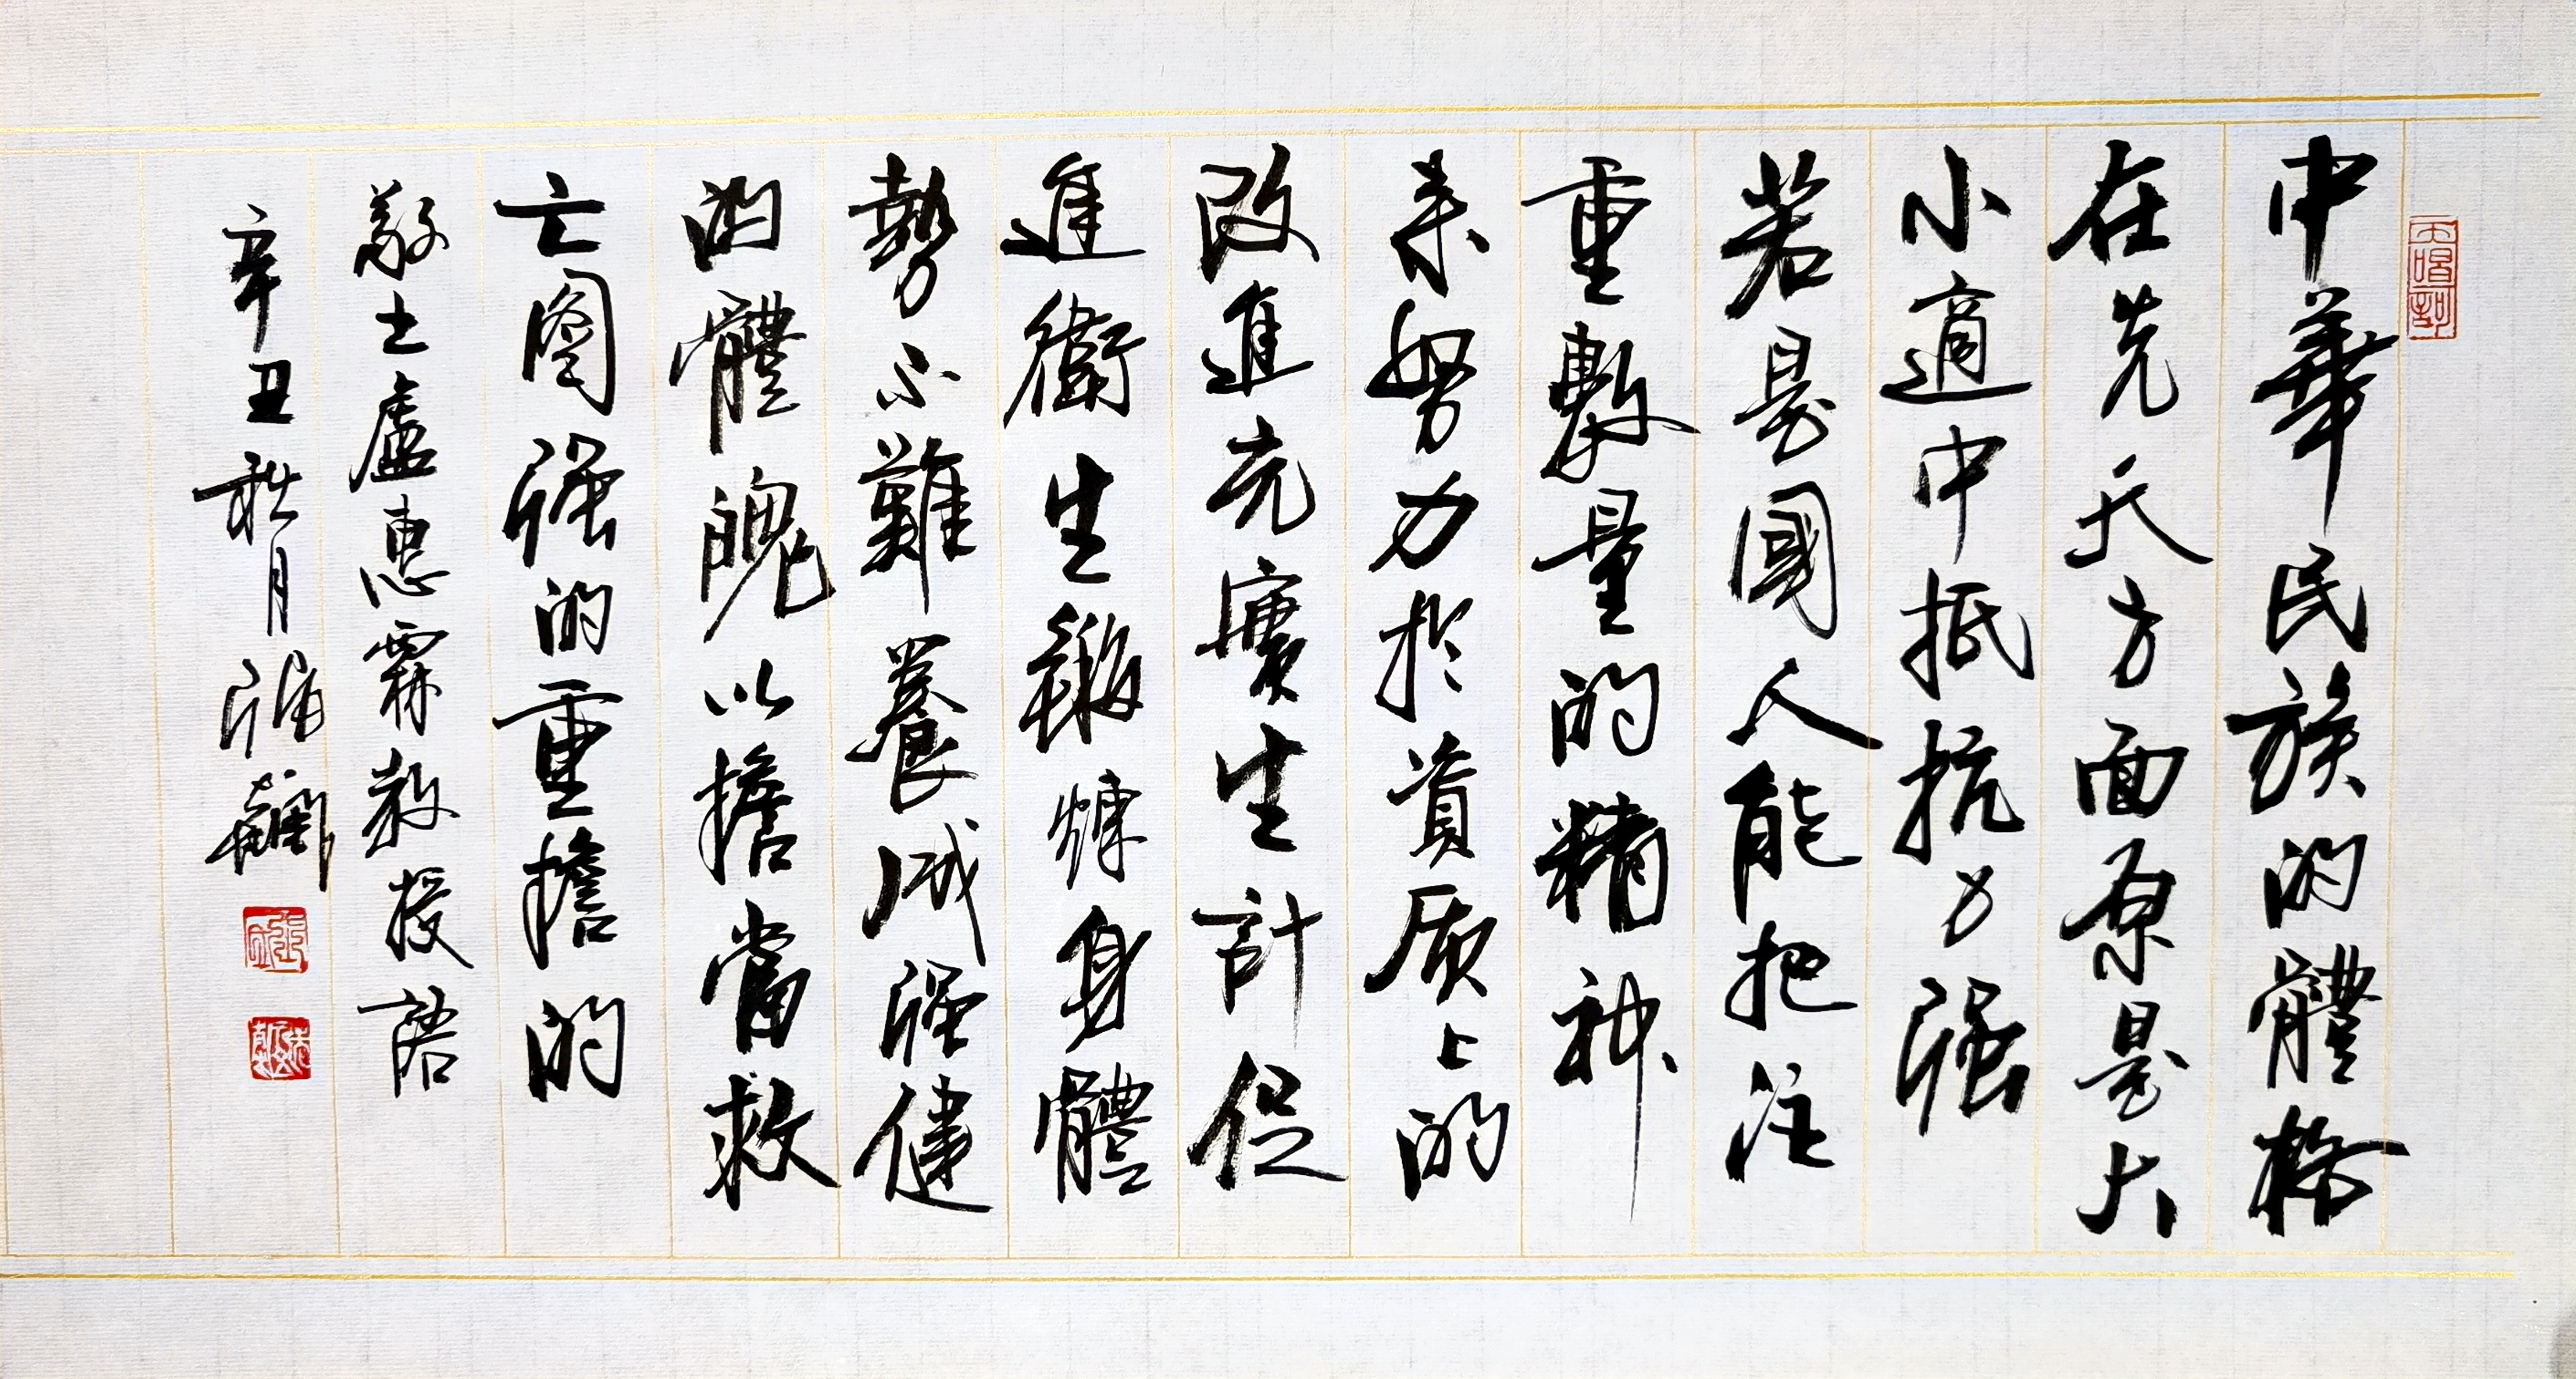 中華民族的體格
在先天方面原是大
小適中抵抗力强
若是國人能把注
重數量的精神
来努力於資质上的
改進充實生計促
進衛生鍛煉身體
勢不難養成强健
的體魄以擔當救
亡圖强的重擔的
敬士盧惠霖教授語
辛丑秋月